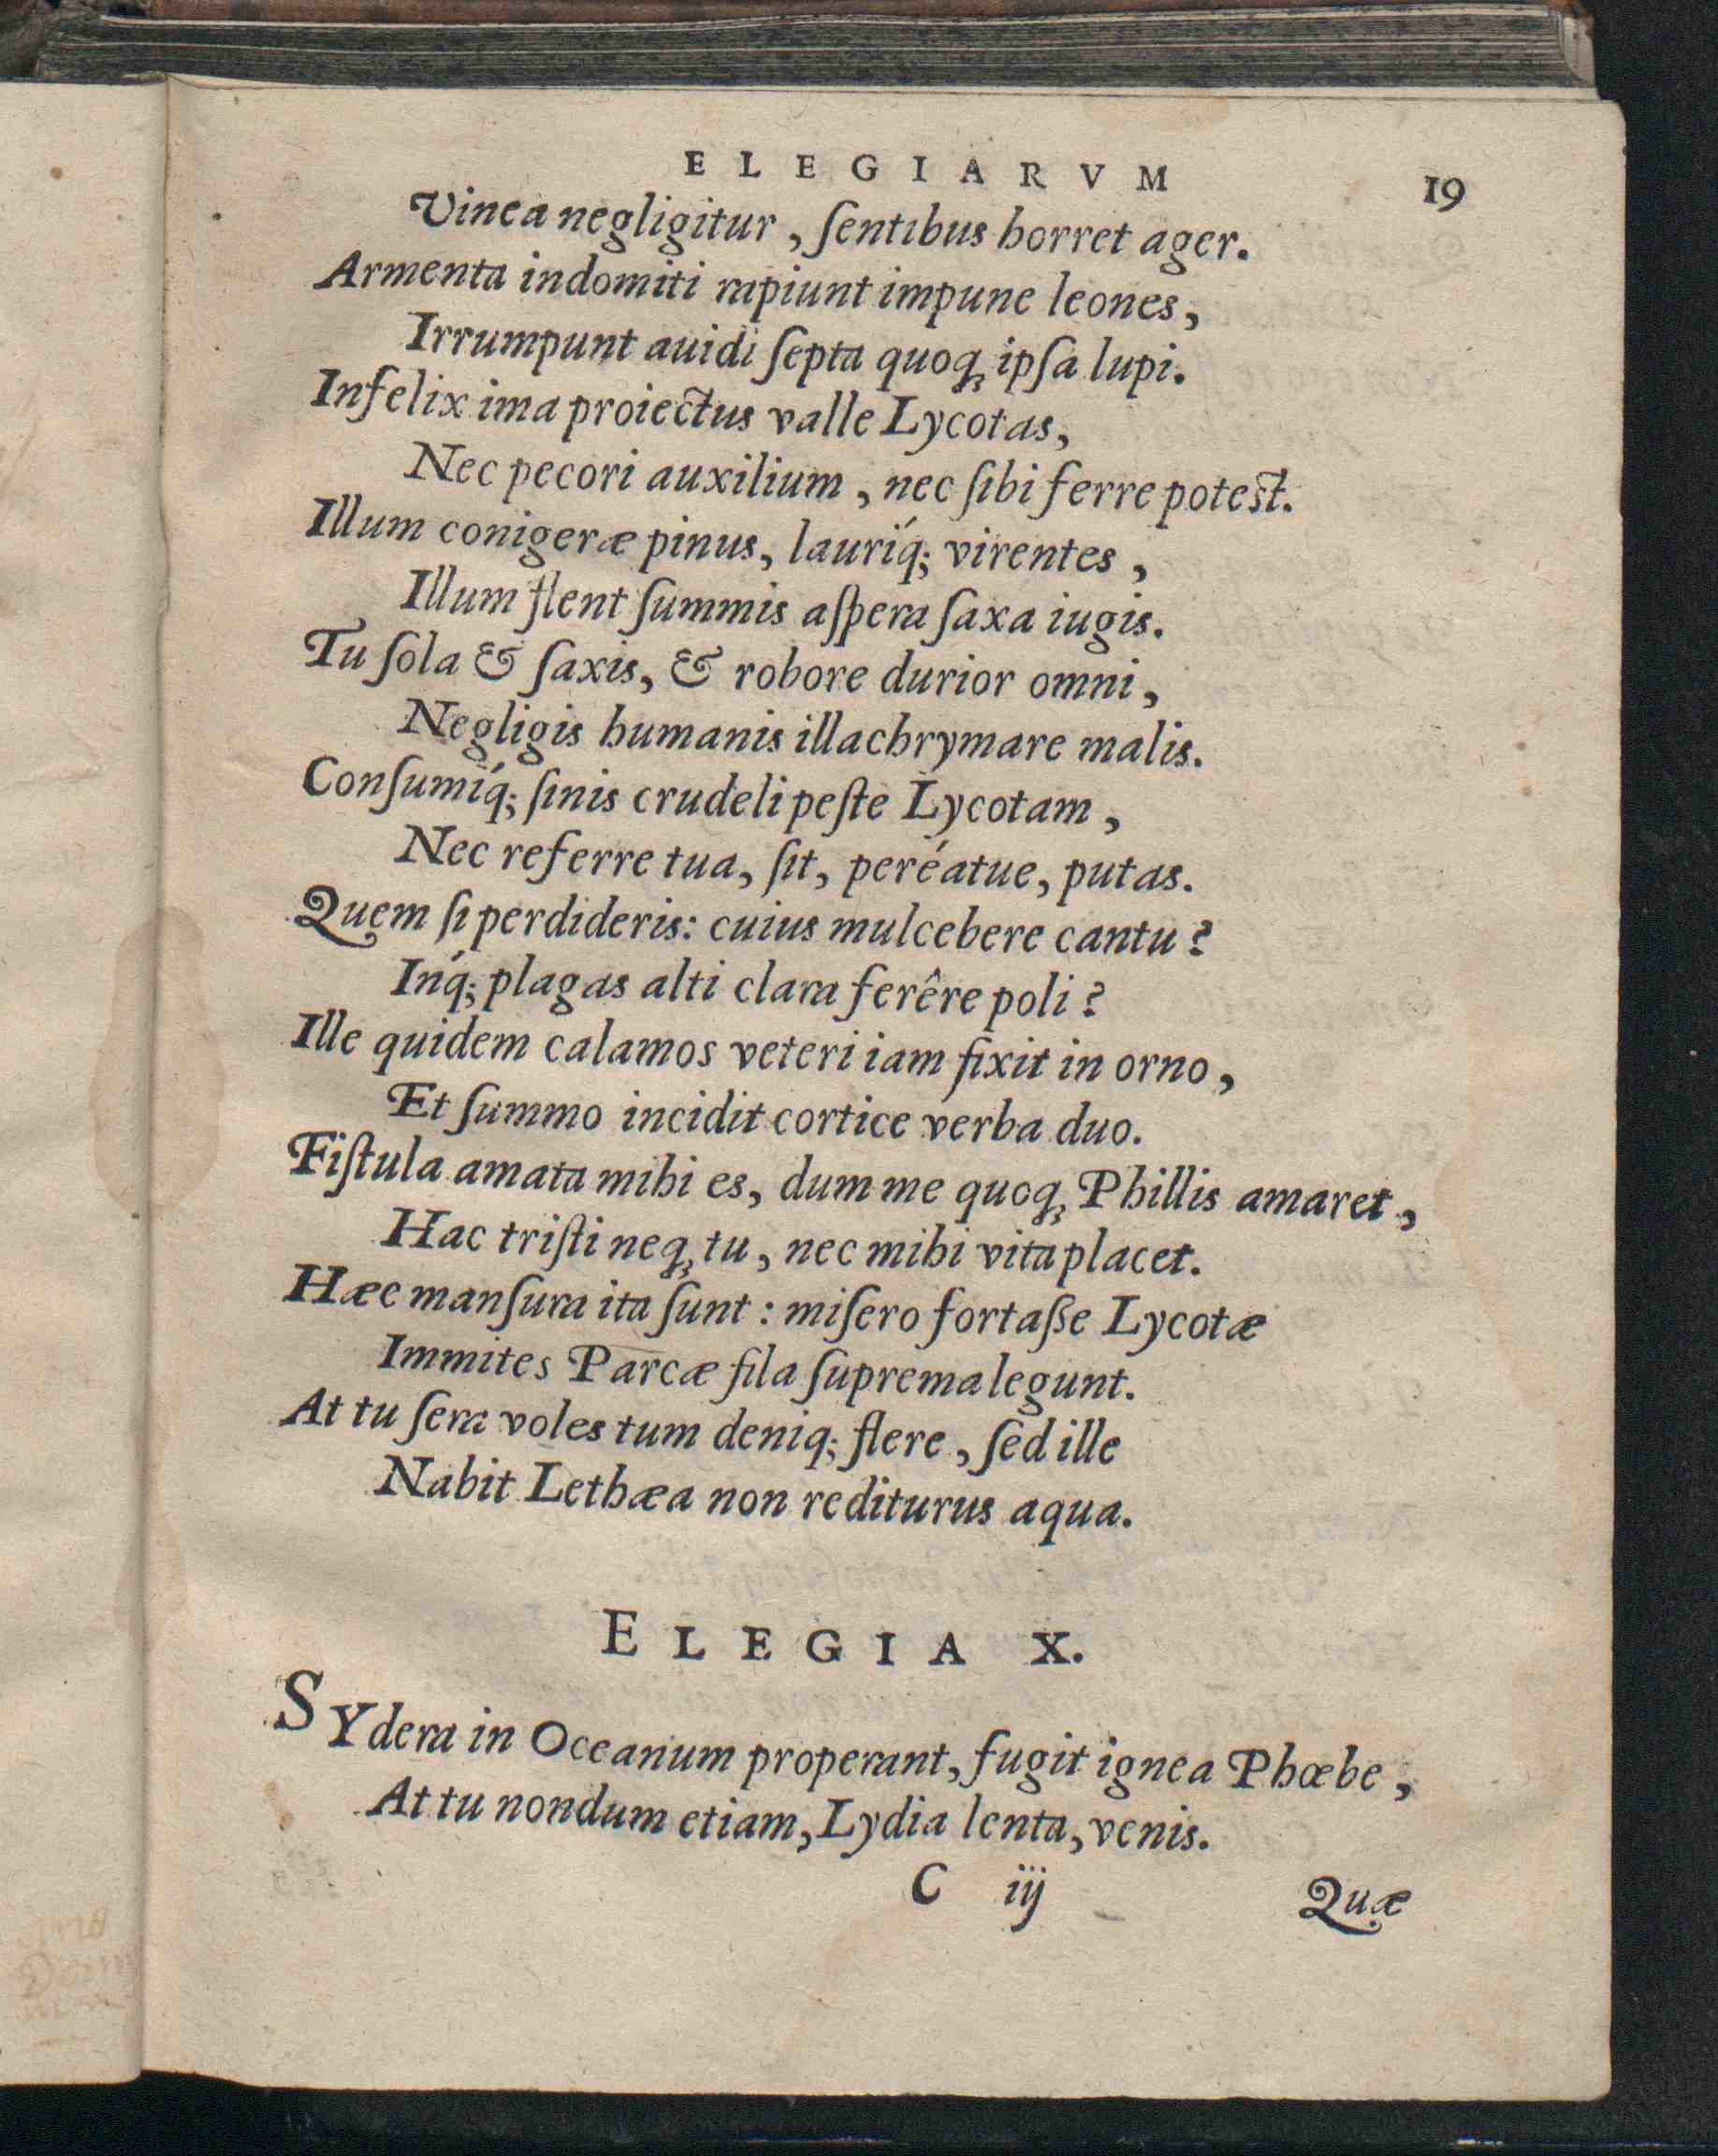 ELEGIARVM 19
Vinea negligitur, ſentibus horret ager.
Armenta indomiti rapiunt impune leones,
Irrumpunt auidi ſepta quoq; ipſa lupi.
Infelix ima proiectus valle Lycotas,
Nec pecori auxilium, nec ſibi ferre potest.
Illum conigeræ pinus, lauriq́; virentes,
Illum flent ſummis aſpera ſaxa iugis.
Tu ſola & ſaxis, & robore durior omni,
Negligis humanis illachrymare malis.
Conſumiq́; ſinis crudeli peſte Lycotam,
Nec referre tua, ſit, peréatue, putas.
Quem ſi perdideris: cuius mulcebere cantu?
Inq́; plagas alti clara ferêre poli?
Ille quidem calamos veteri iam fixit in orno,
Et ſummo incidit cortice verba duo.
Fiſtula amata mihi es, dum me quoq; Phillis amaret,
Hac triſti neq; tu, nec mihi vita placet.
Hæc manſura ita ſunt: miſero fortaſſe Lycotæ
Immites Parcæ fila ſuprema legunt.
At tu ſera voles tum deniq; flere, ſed ille
Nabit Lethæa non rediturus aqua.
ELEGIA X.
SYdera in Oceanum properant, fugit ignea Phœbe,
At tu nondum etiam, Lydia lenta, venis.
C iij Quæ